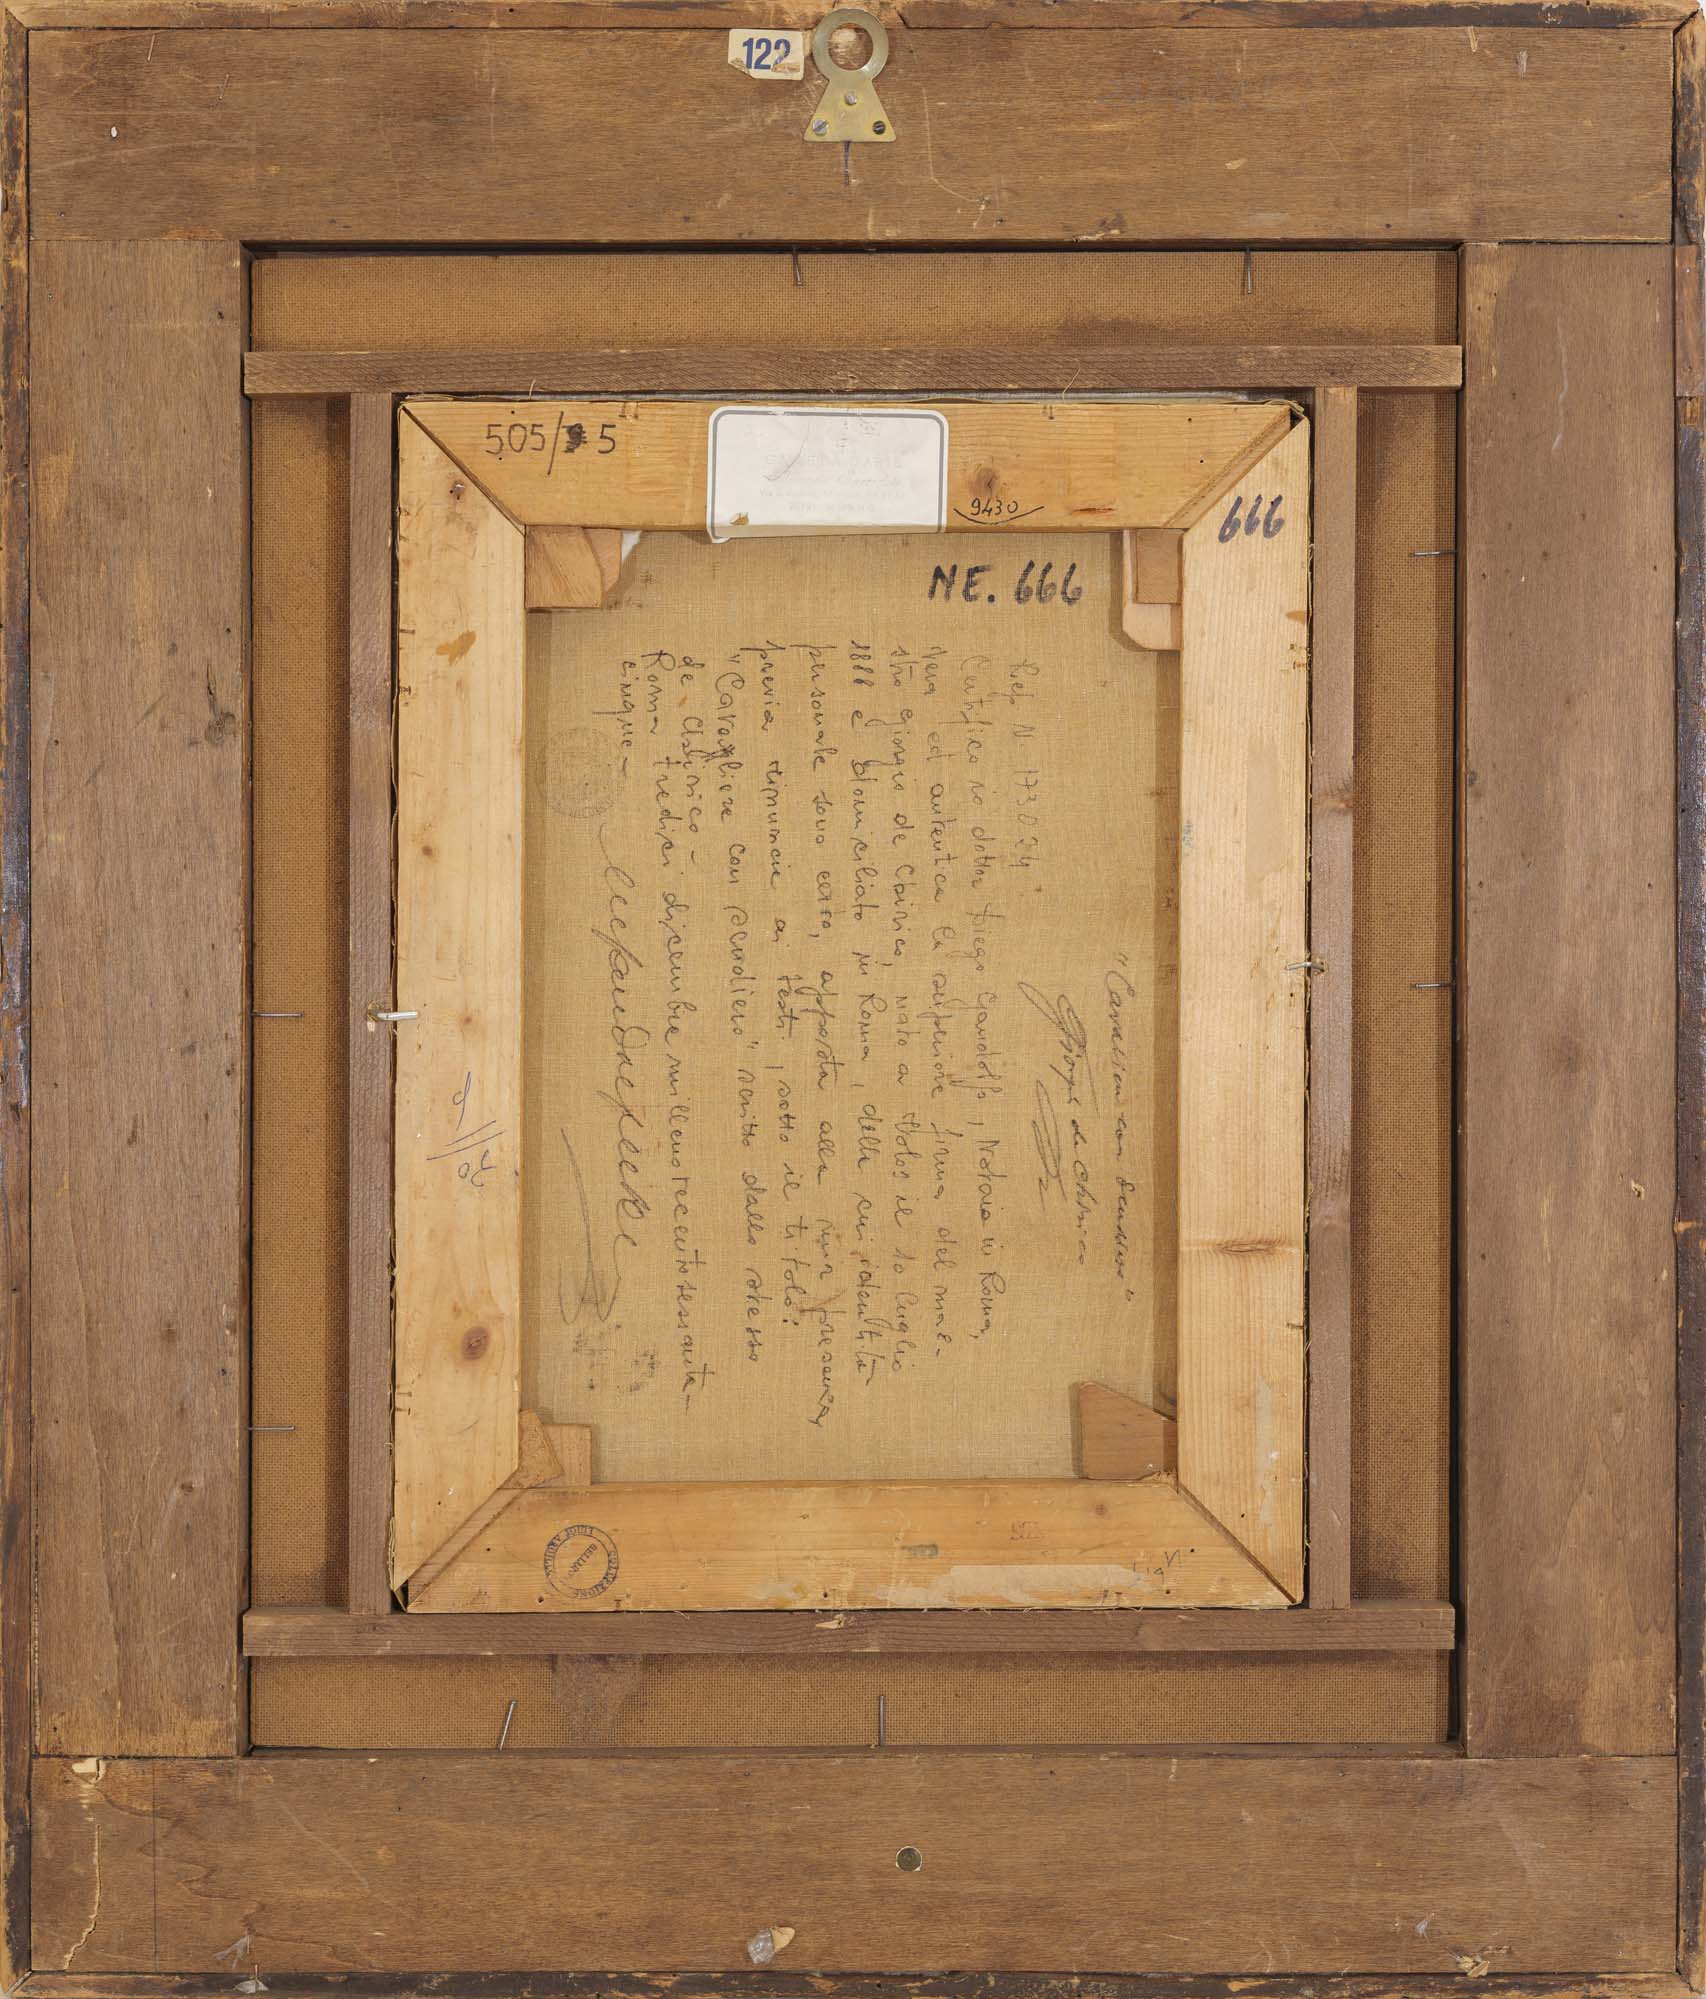 122
505/ 5
9430
666
NE. 666
"Cavaliere con scudiero"
Giorgio de Chirico
Rep. N. 173024
Certifico io dottor Diego Gandolfo, Notaio in Roma,
vera ed autentica la superiore firma del mae-
stro Giorgio de Chirico, nato a Volos il 10 luglio
1888 e domiciliato in Roma, della cui identità
personale sono certo, apposta alla mia presenza,
previa rinuncia ai testi, sotto il titolo:
"Cavagliere con scudiero" scritto dallo stesso
de Chirico -
Roma tredici dicembre millenovecentosessanta-
cinque -
COLLEZIONE
LUIGI